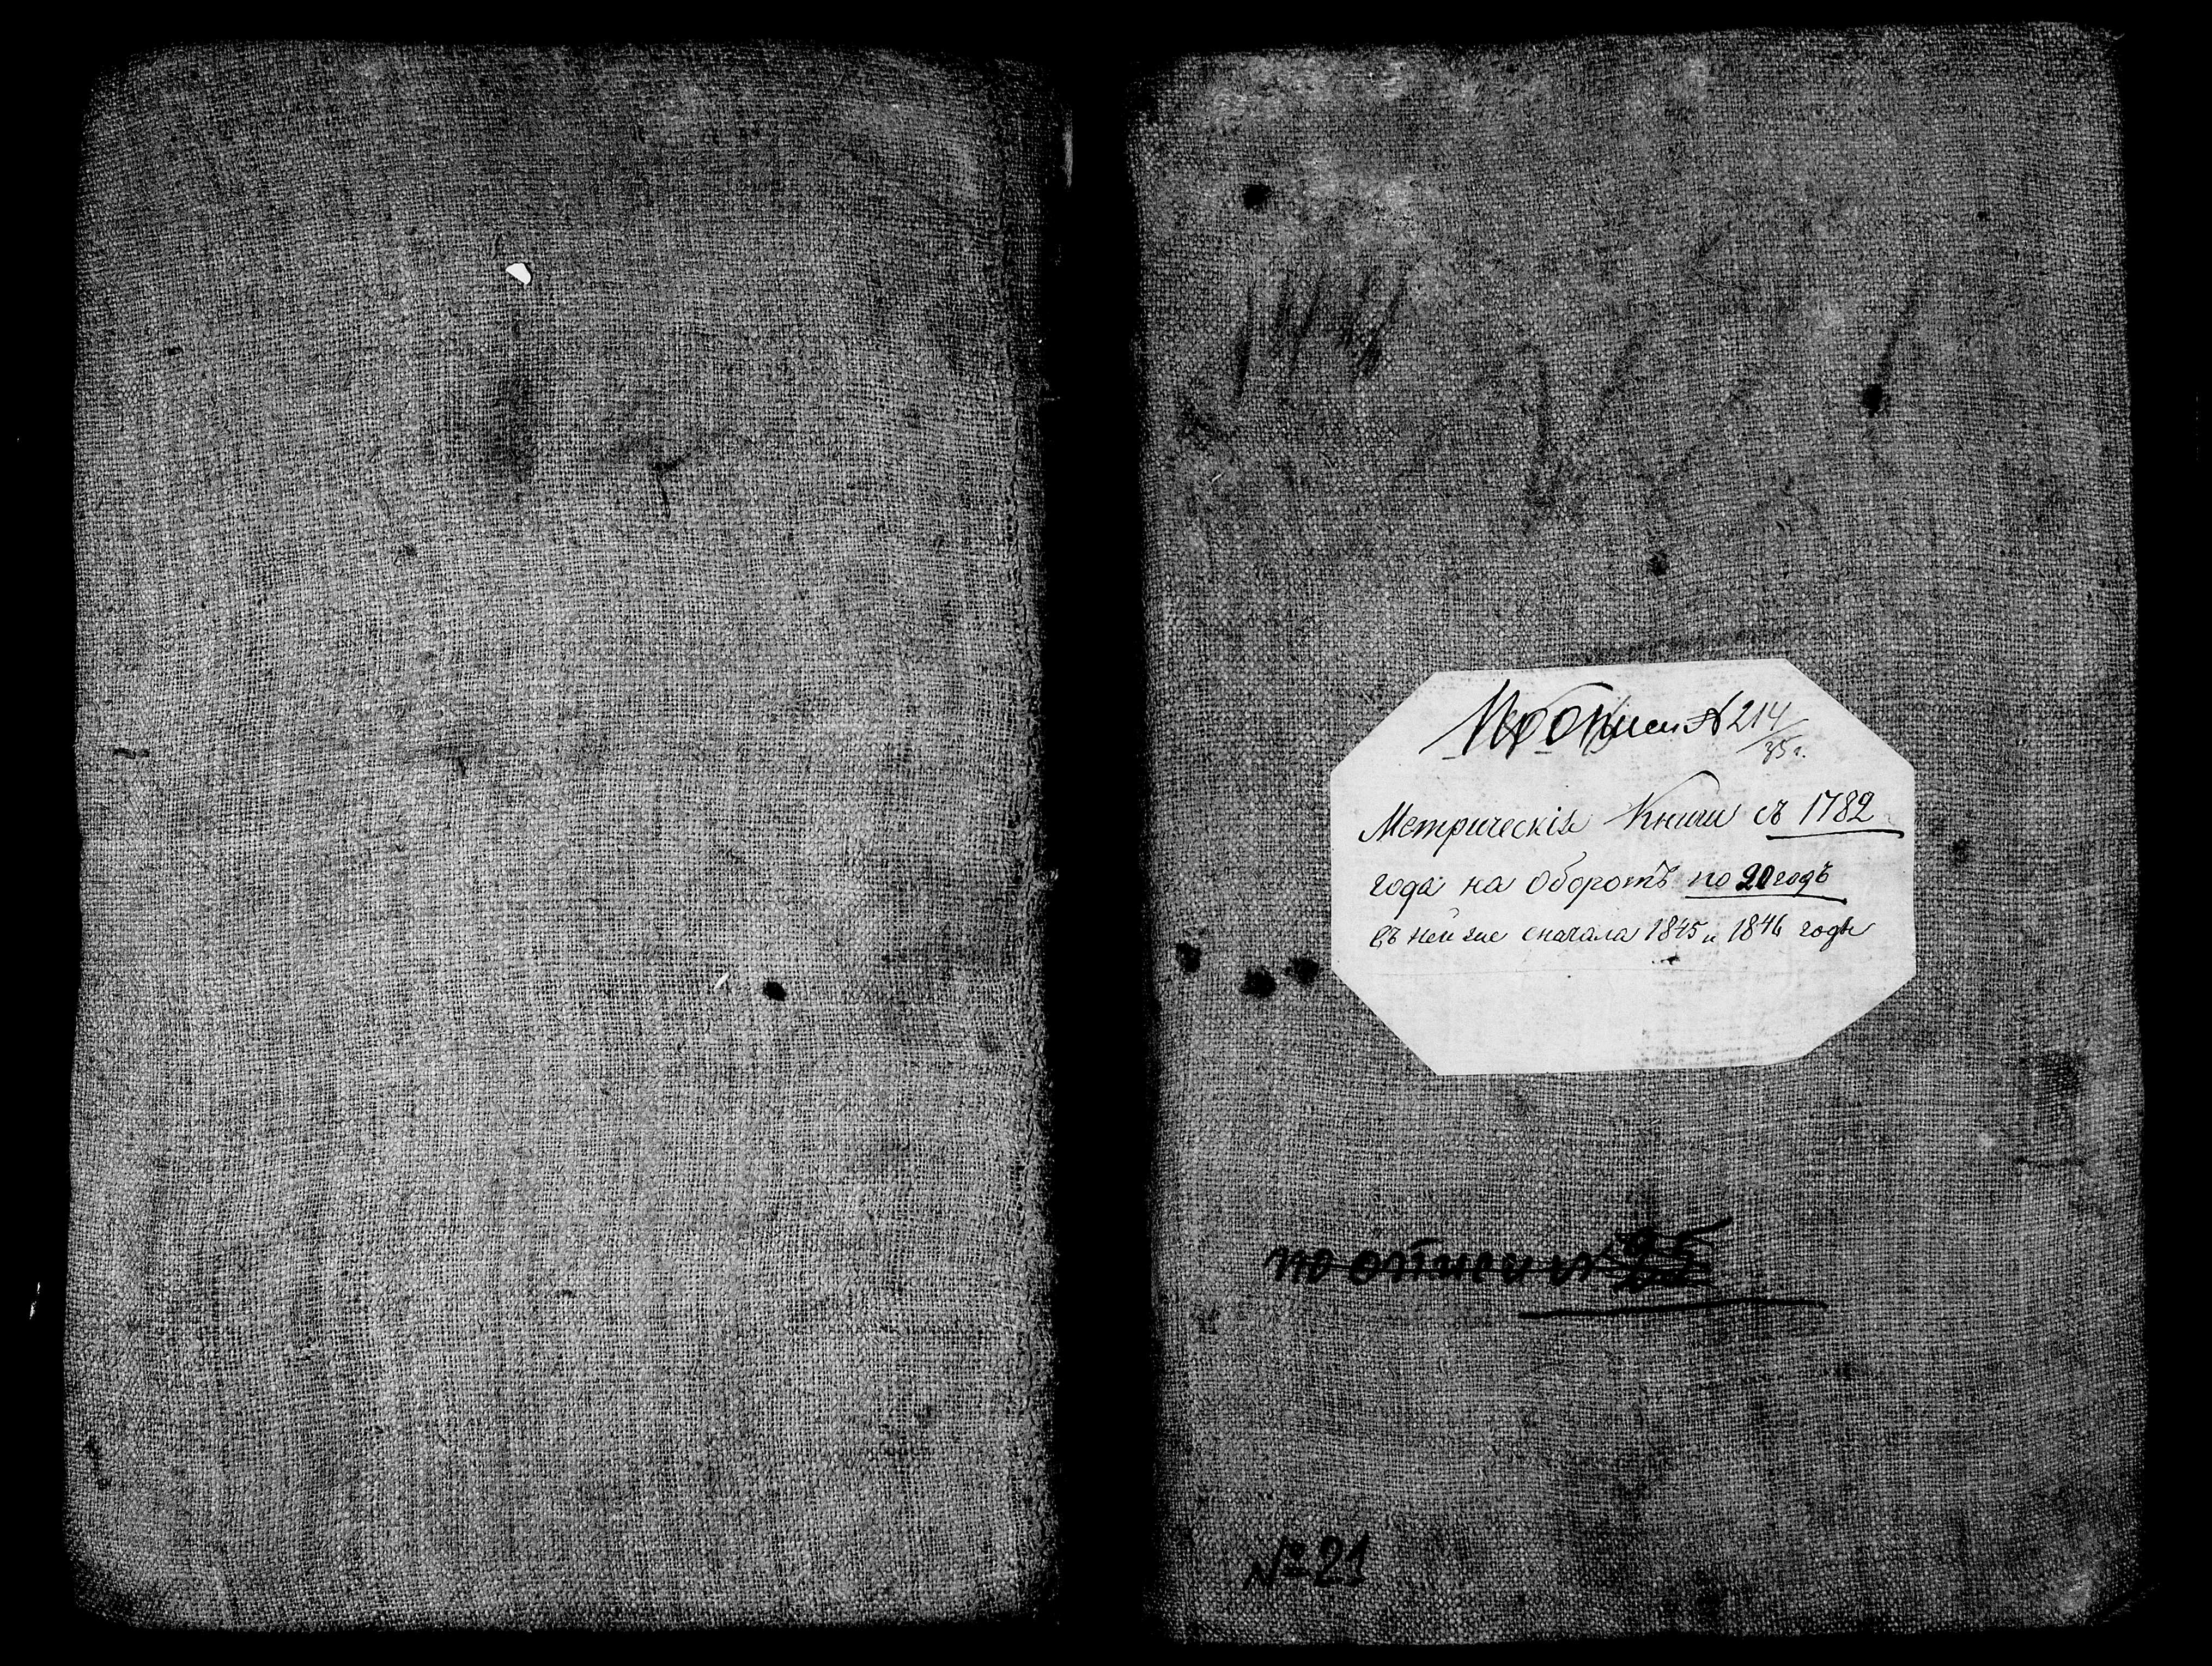 По описи № 214/35 г.
Метрическія Книги съ 1782
года на оборотъ по 20 годъ
въ ней же сначала 1845 и 1846 годы
по описи № 25
№ 21